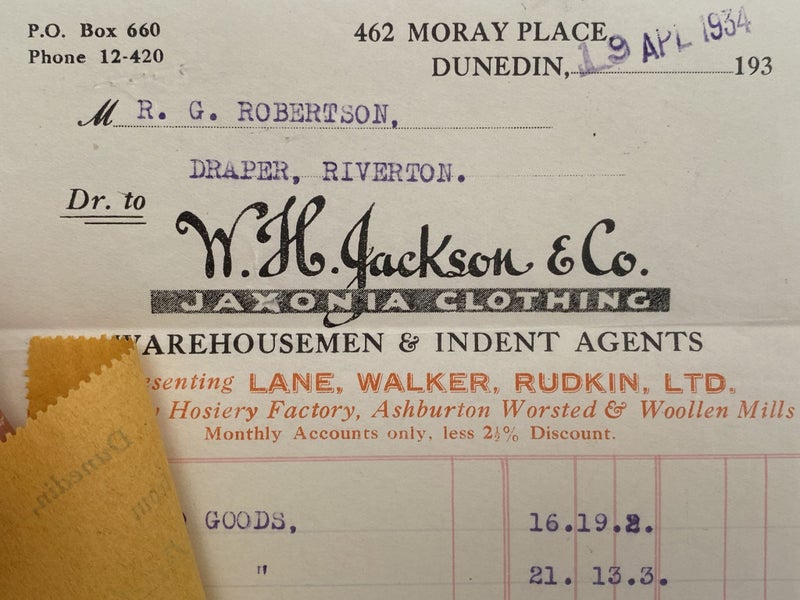 P.O. Box 660
Phone 12-420
462 MORAY PLACE,
DUNEDIN, 193
19 APL 1934
M R. G. ROBERTSON,
DRAPER, RIVERTON.
Dr. to
W. H. Jackson & Co.
JAXONIA CLOTHING
WAREHOUSEMEN & INDENT AGENTS
esenting LANE, WALKER, RUDKIN, LTD.
Hosiery Factory, Ashburton Worsted & Woollen Mills
Monthly Accounts only, less 2½% Discount.
GOODS, 16.19.2.
" 21. 13.3.
Dunedin,